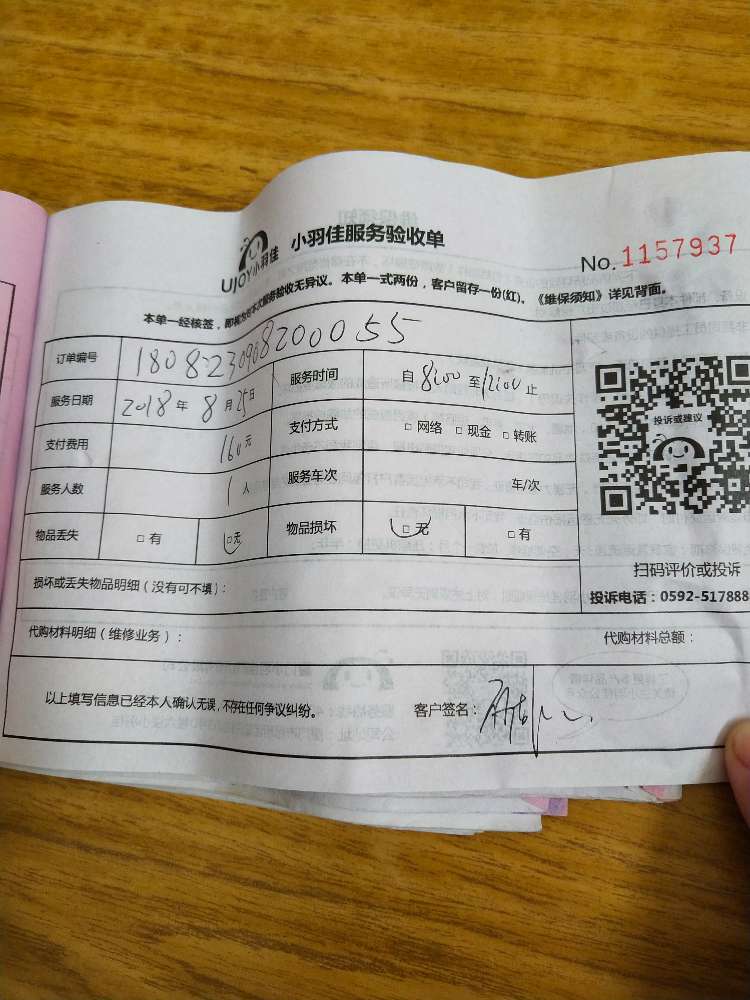 UJOY小羽佳 小羽佳服务验收单
No. 1157937
本单一经核签，即视为对本次服务验收无异议。本单一式两份，客户留存一份(红)。《维保须知》详见背面。
订单编号 18082309082000055
服务日期 2018年8月25日 服务时间 自8:00至12:00止
支付费用 160元 支付方式 □网络 □现金 □转账
服务人数 1人 服务车次 车/次
物品丢失 □有 □无 物品损坏 □无 □有
投诉或建议
扫码评价或投诉
投诉电话：0592-517888
损坏或丢失物品明细（没有可不填）：
代购材料明细（维修业务）： 代购材料总额：
以上填写信息已经本人确认无误，不存在任何争议纠纷。 客户签名：